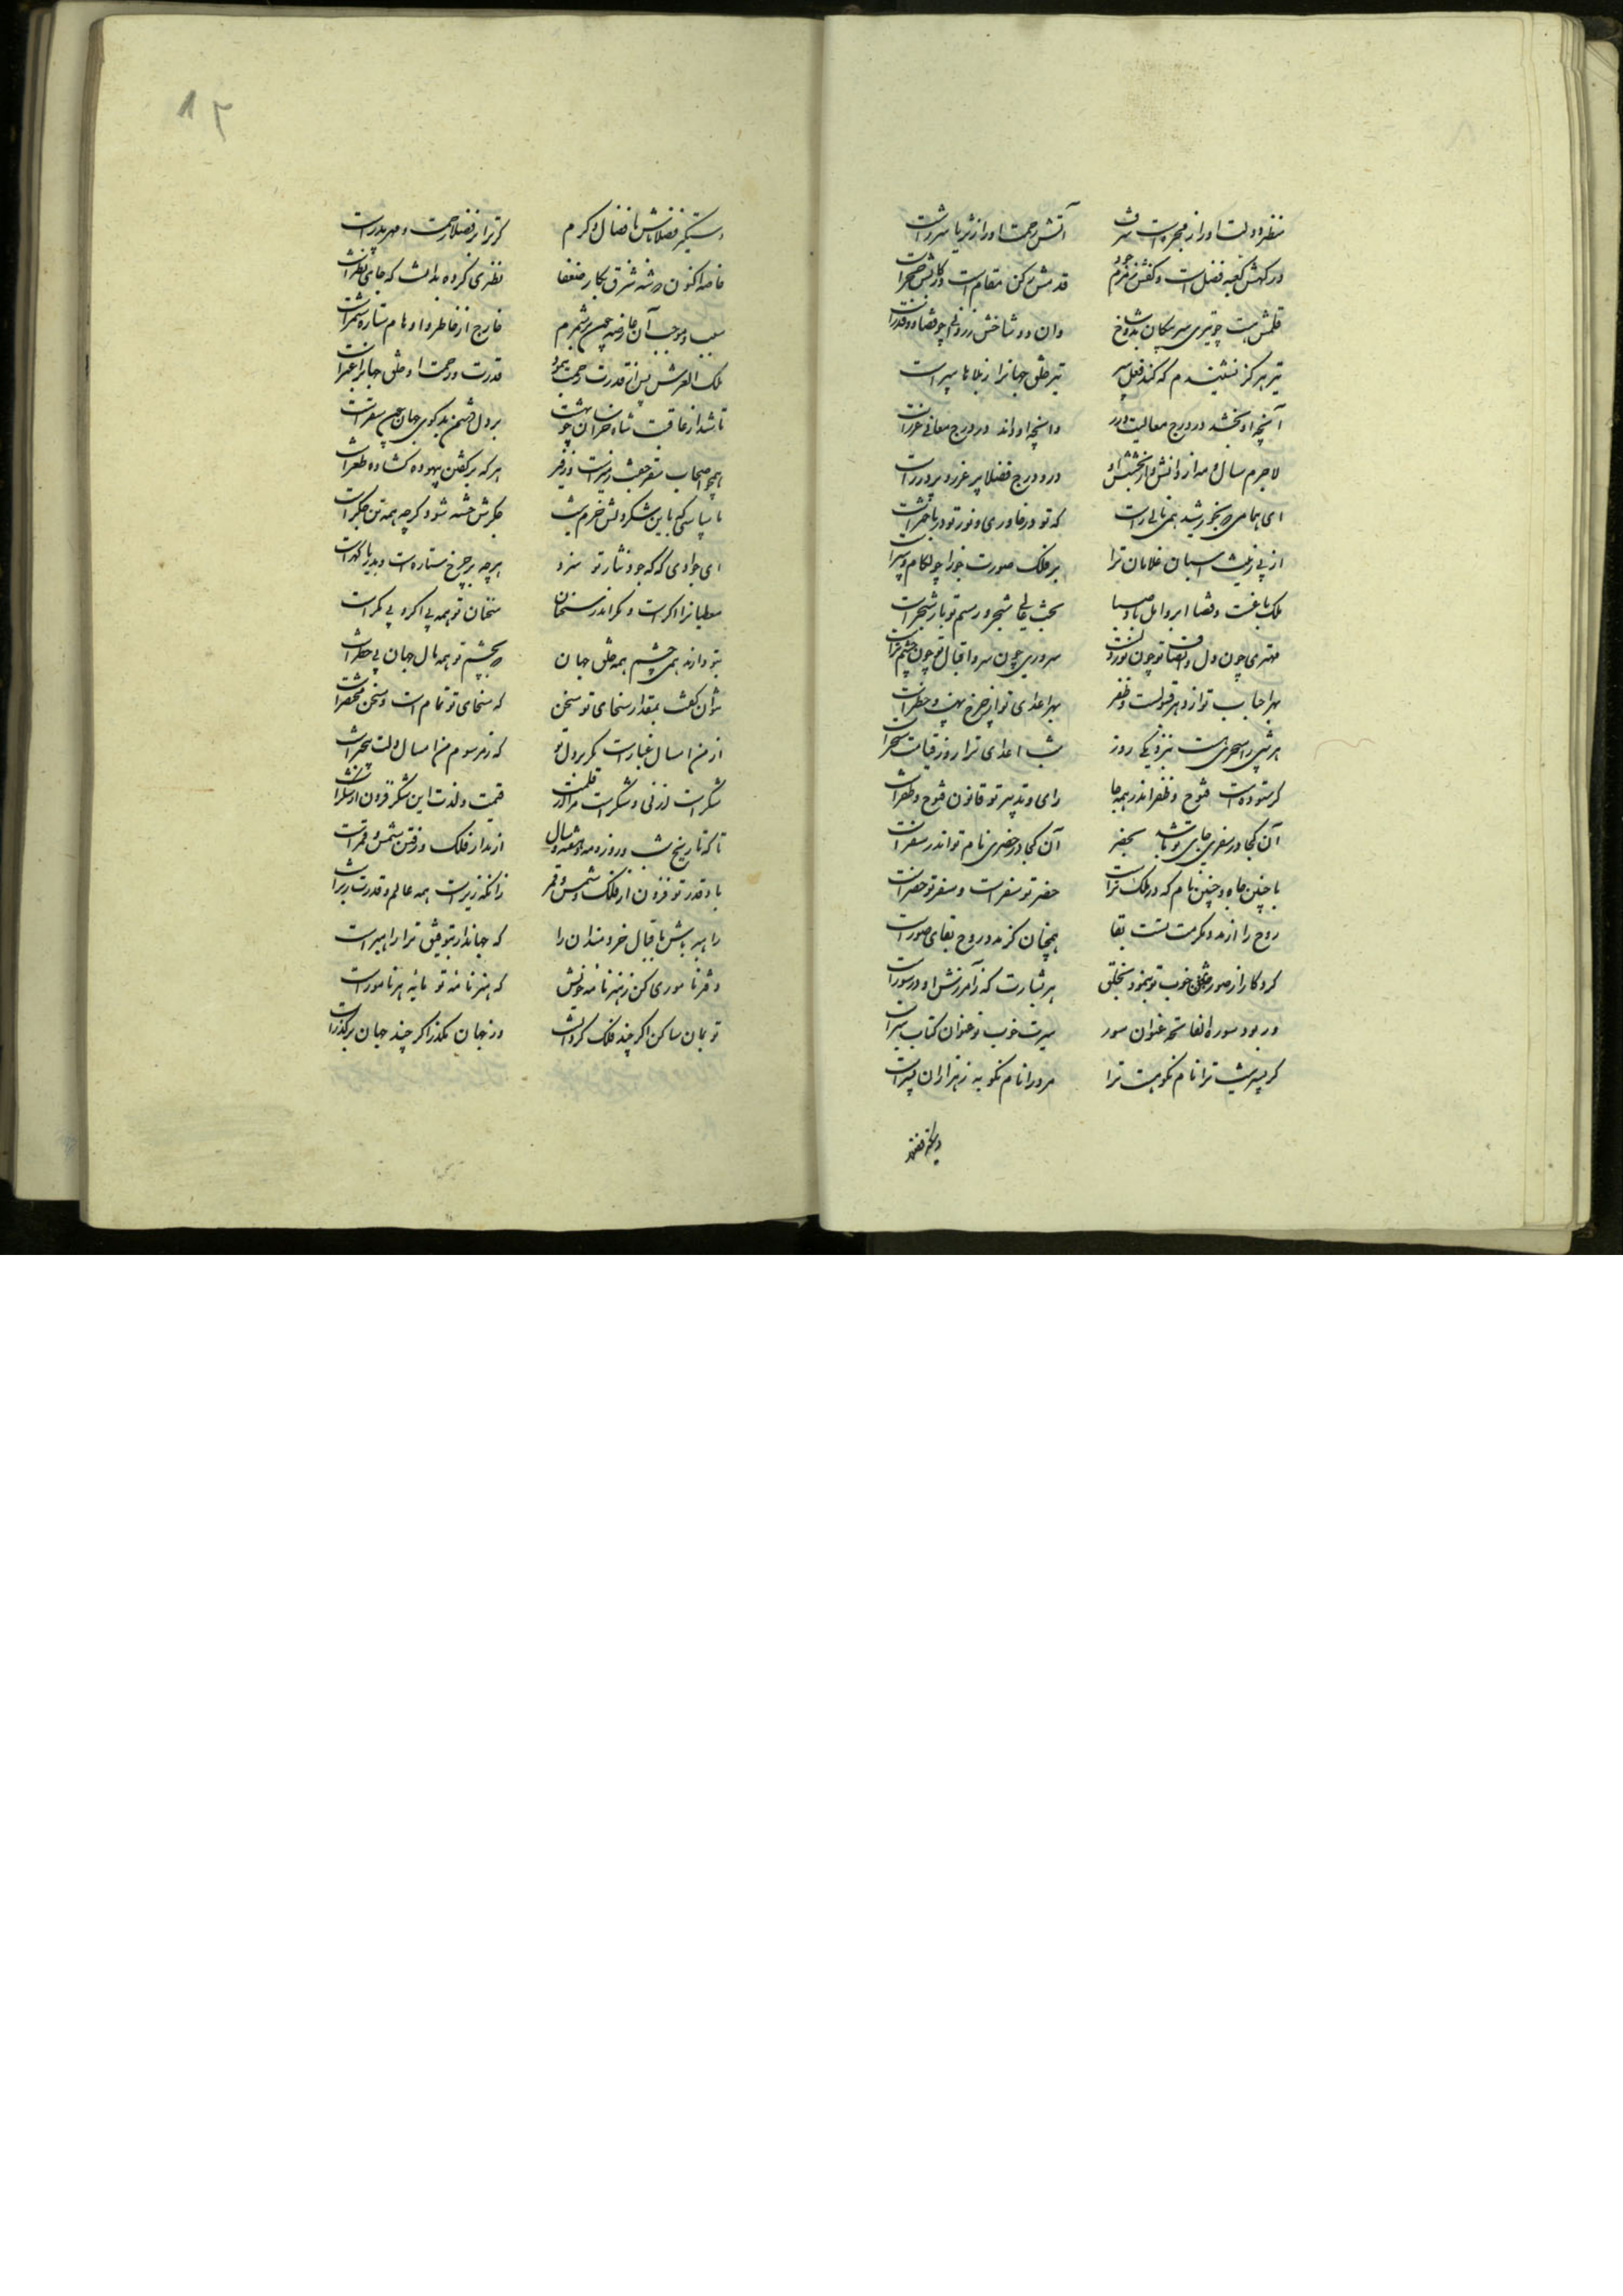 منظر دولت او را ز مجره است شرف
آتش رحمت او را ز ثریا شرر است
درگهش کعبه فضل است و کفش زمزم جود
قدمش رکن مقام است و رکابش حجر است
قلمش هست چو تیری سر پیکان بدو شاخ
وان دو شاخش زر و قلم چو قضا و قدر است
تیر هرگز نشنیدم که کند فعل سپر
تیر خلق جهانرا ز بلاها سپر است
آنچه او بخشد در درج معالیت درر
وانچه او داند در درج معانی غرر است
لاجرم سال و مه از دانش و از بخشش او
درو درج فضلا پر غرر و پر درر است
ای همامی که بخورشید همی نالی راست
که تو در خاوری و نور تو در باختر است
از پی زینت اسبان غلامان ترا
بر فلک صورت جوزا چو لکام و سپر است
ملک باغست و قضا ابر و امل باد صبا
بخت عالی شجر و رسم تو بار شجر است
مهتری چون دل و انصاف تو چون نور دلست
سروری چون سر و اقبال تو چون چشم سر است
بهر احباب تو از دهر قبولست و ظفر
بهر اعدای تو از چرخ نهیب و خطر است
هر شبی را سحری هست بنزدیکی روز
شب اعدای ترا روز قیامت سحر است
گر ستوده است فتوح و ظفر اندر همه جا
رای و تدبیر تو قانون فتوح و ظفر است
آن کجا در سفری جای تو باشد بحضر
آن کجا در حضری نام تو اندر سفر است
با چنین جاه و چنین نام که در ملک تراست
حضر تو سفر است و سفر تو حضر است
روح را از مدد مکرمت تست بقا
همچنان کز مدد روح بقای صور است
کردگار از صور خوب تو بنمود بخلق
هر بشارت که ز آمرزش او در سور است
ور بود سوره الفاتحه عنوان سور
سیرت خوب تو عنوان کتاب سیر است
گر پسر نیست ترا نام نکو هست ترا
مرد را نام نکو به ز هزاران پسر است
دستگیر فضلا باش بافضال و کرم
که ترا بر فضلا رحمت و مهر پدر است
خاصه اکنون که شه شرق بکار ضعفا
نظری کرده بدانست که جای نظر است
سبب و موجب آن عارضه چون برشمرم
خارج از خاطر و اوهام ستاره شمر است
ملک العرش پس از قدرت رحمت بنمود
قدرت و رحمت او خلق جهانرا عبر است
تا شد از عاقبت شاه خراسان چو بهشت
بر دل دشمن بدگوی جهان چون سقر است
همچو اصحاب سقر جفت زفیر است
هر که بر گفتن بیهوده گشاده ظفر است
ناسپاسی که باین شکر دلش خرم نیست
جگرش خسته شود گرچه همه تن جگر است
ای جوادی که گه جود نثار تو سزد
هر چه بر چرخ ستاره است و بدریا گهر است
معطیانرا اگر است و مگر اندر سخنان
سخنان تو همه بی اگر و بی مگر است
بتو دارند همی چشم همه خلق جهان
که بچشم تو همه مال جهان بی خطر است
نتوان گفت بمقدار سخای تو سخن
که سخای تو تمام است و سخن مختصر است
از من امسال غبار است مگر بر دل تو
که ز مرسوم من امسال دلت بیخبر است
شکر است ارزنی و شکر است مرا در قلمت
قیمت و لذت این شکر فزون از شکر است
تا که تاریخ شب و روز و مه و هفته و سال
از مدار فلک و رفتن شمس و قمر است
باد قدر تو فزون از فلک و شمس و قمر
زانکه زیر است همه عالم و قدرت زبر است
راهبر باش باقبال خردمندان را
که جهاندار بتوفیق ترا راهبر است
دفتر ناموری کن ز هنرنامه خویش
که هنرنامه تو مایه هر نامور است
تو بمان ساکن اگر چند فلک گردانست
در جهان مگذر اگر چند جهان بر گذر است
دستگیر فضلا
۱۲